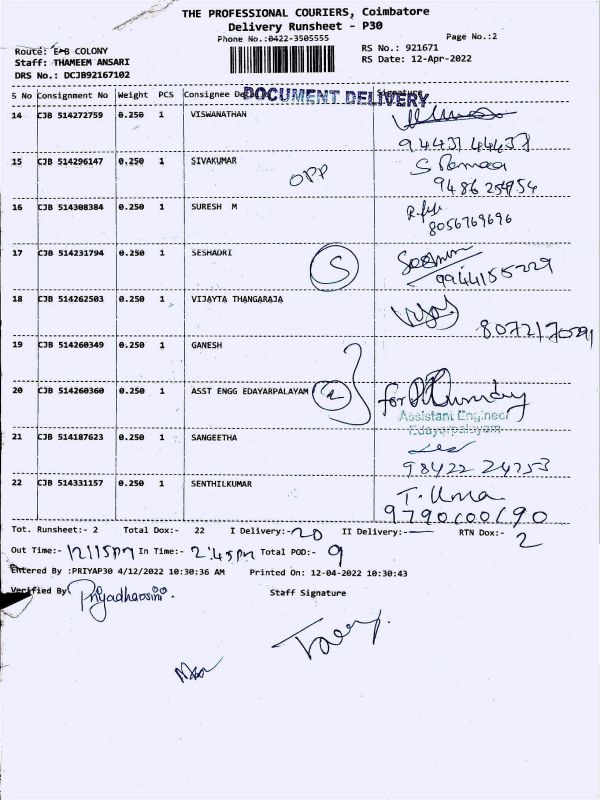 THE PROFESSIONAL COURIERS, Coimbatore
Delivery Runsheet - P30
Phone No.:0422-3505555
Page No.:2
Route: E-B COLONY
RS No.: 921671
Staff: THAMEEM ANSARI
RS Date: 12-Apr-2022
DRS No.: DCJB92167102
S No Consignment No Weight PCS Consignee Signature
DOCUMENT DELIVERY
14 CJB 514272759 0.250 1 VISWANATHAN
94431 44437
15 CJB 514296147 0.250 1 SIVAKUMAR
OPP
16 CJB 514308384 0.250 1 SURESH M
8056769696
17 CJB 514231794 0.250 1 SESHADRI
S
9944155229
18 CJB 514262503 0.250 1 VIJAYTA THANGARAJA
19 CJB 514260349 0.250 1 GANESH
20 CJB 514260360 0.250 1 ASST ENGG EDAYARPALAYAM 2
for
Assistant Engineer
Edayarpalayam
21 CJB 514187623 0.250 1 SANGEETHA
98422 24753
22 CJB 514331157 0.250 1 SENTHILKUMAR
T. Uma
9790100190
Tot. Runsheet:- 2 Total Dox:- 22 I Delivery:- 20 II Delivery:- RTN Dox:- 2
Out Time:- 12:15pm In Time:- 2:45pm Total POD:- 9
Entered By :PRIYAP30 4/12/2022 10:30:36 AM Printed On: 12-04-2022 10:30:43
Verified By Priyadharsini. Staff Signature